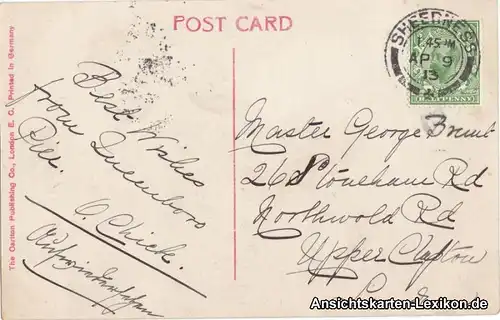 POST CARD
The Carlton Publishing Co., London E. C. Printed in Germany
Best Wishes
from Queenboro
Pier.
A Chick.
Aufwiedersehen
SHEERNESS
AP 9
13
HALFPENNY
Master George
26 Stoneham Rd
Northwold Rd
Upper Clapton
Ansichtskarten-Lexikon.de